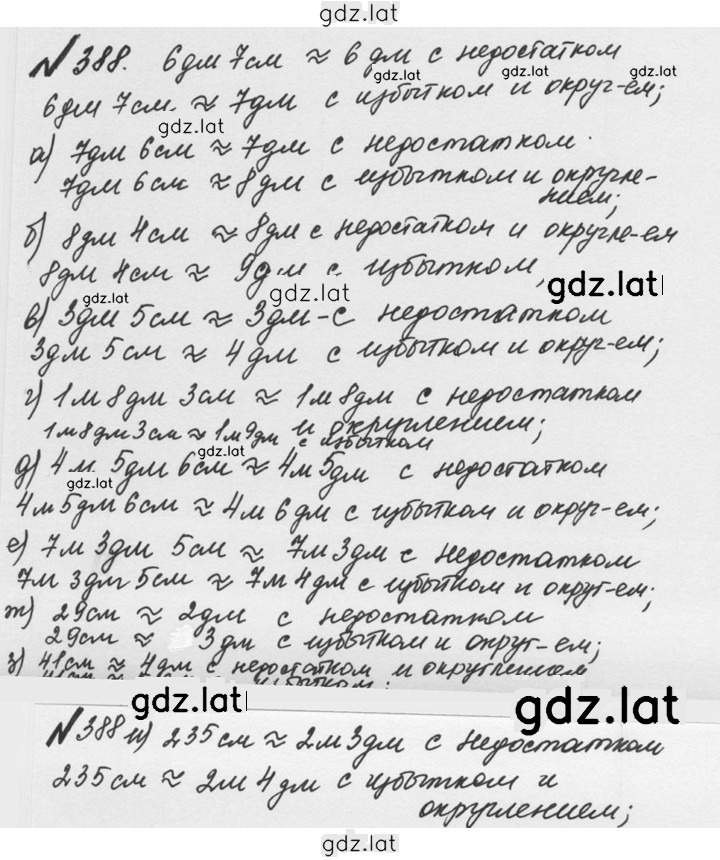 gdz.lat
№388. 6дм 7см ≈ 6 дм с недостатком
gdz.lat gdz.lat gdz.lat
6дм 7см. ≈ 7дм с избытком и округ-ем;
gdz.lat
а) 7дм 6см ≈ 7дм с недостатком.
7дм 6см ≈ 8дм с избытком и округле-
нием;
б) 8дм 4см ≈ 8дм с недостатком и округле-ем
8дм 4см ≈ 9дм с избытком,
gdz.lat gdz.lat
в) 3дм 5см ≈ 3дм-с недостатком
3дм 5см ≈ 4дм с избытком и округ-ем;
г) 1м 8дм 3см ≈ 1м 8дм с недостатком
и округлением;
1м 8дм 3см ≈ 1м 9дм с избытком
gdz.lat
д) 4м. 5дм 6см ≈ 4м 5дм с недостатком
gdz.lat gdz.lat
4м 5дм 6см ≈ 4м 6дм с избытком и округ-ем;
е) 7м 3дм 5см ≈ 7м 3дм с недостатком
7м 3дм 5см ≈ 7м 4дм с избытком и округ-ем;
ж) 29см ≈ 2дм с недостатком
29см ≈ 3дм с избытком и округ-ем;
з) 41см ≈ 4дм с недостатком и округлением
избытком;
gdz.lat gdz.lat
№388 и) 235см ≈ 2м 3дм с недостатком
235см ≈ 2м 4дм с избытком и
округлением;
gdz.lat